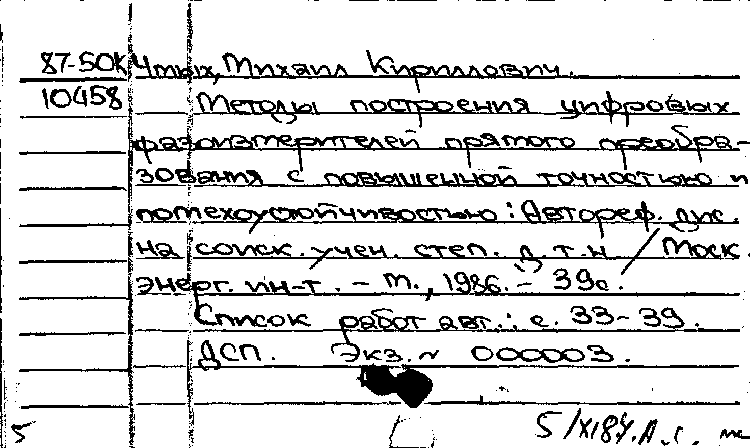 87-50К Чмых, Михаил Кириллович.
10458 Методы построения цифровых
фазоизмерителей прямого преобра-
зования с повышенной точностью и
помехоустойчивостью: Автореф. дис.
на соиск. учен. степ. д.т.н. / Моск.
энерг. ин-т. – М., 1986. – 39с.
Список работ авт.: с. 33-39.
ДСП. Экз. № 000003.
5 5/XI87.